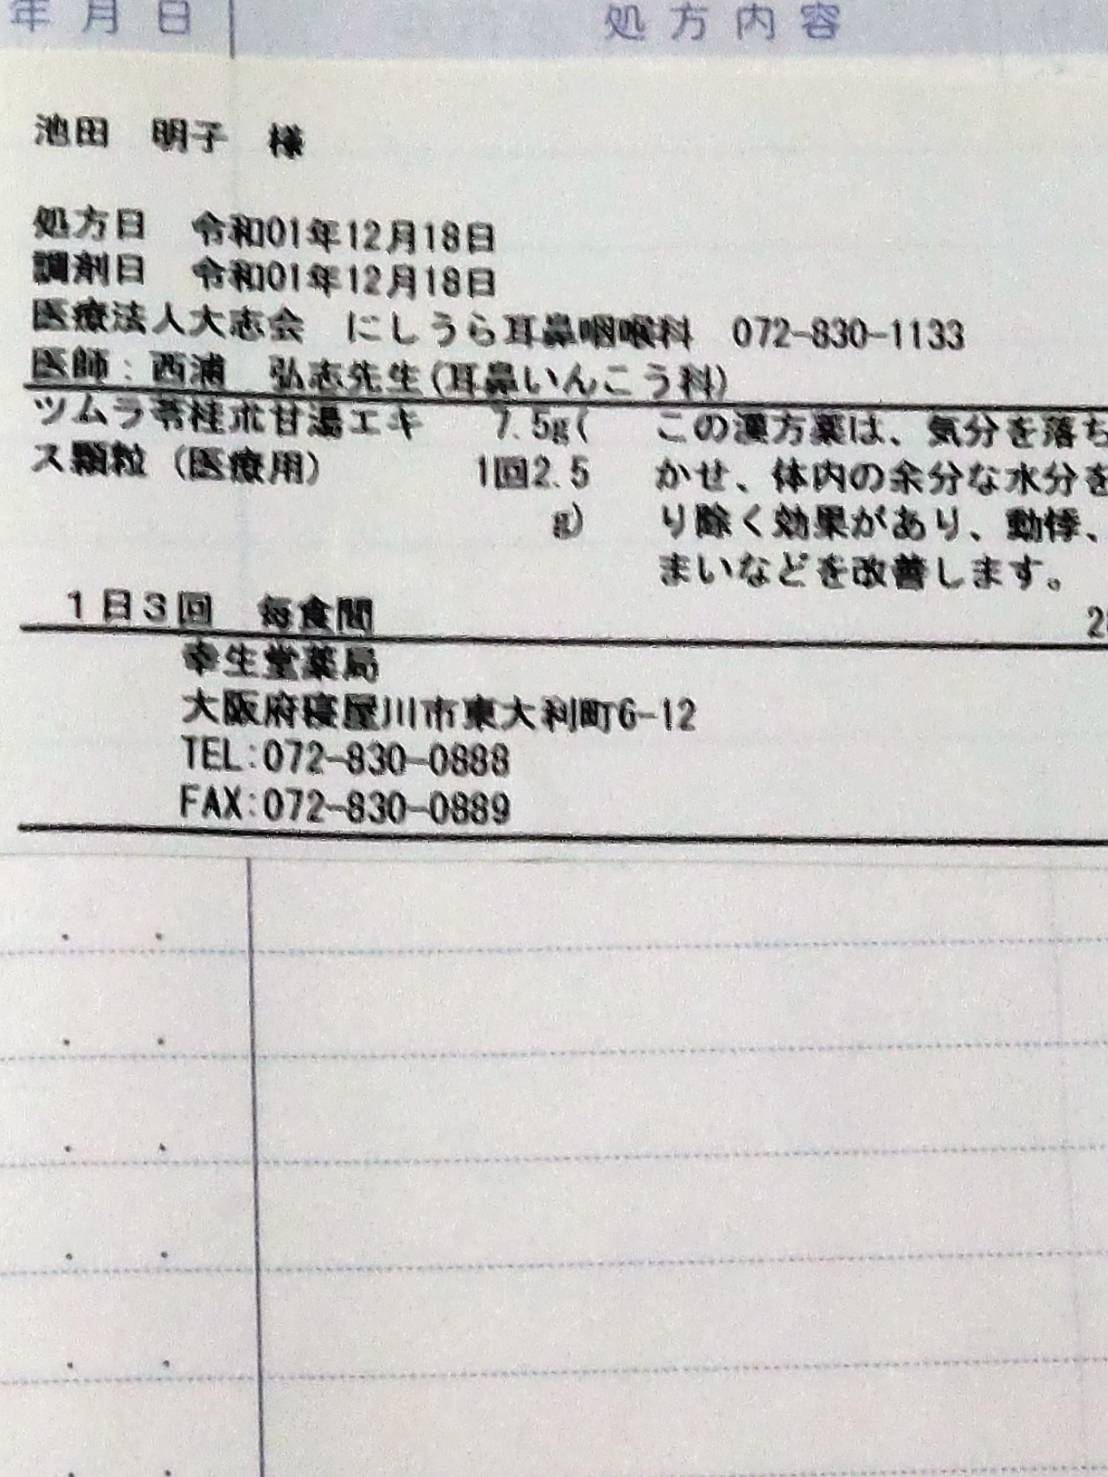 年月日 処方内容
池田 明子 様
処方日 令和01年12月18日
調剤日 令和01年12月18日
医療法人大志会 にしうら耳鼻咽喉科 072-830-1133
医師：西浦 弘志先生(耳鼻いんこう科)
ツムラ苓桂朮甘湯エキ 7.5g( この漢方薬は、気分を落ち
ス顆粒（医療用） 1回2.5 かせ、体内の余分な水分を
g) り除く効果があり、動悸、
まいなどを改善します。
1日3回 毎食間 2
幸生堂薬局
大阪府寝屋川市東大利町6-12
TEL:072-830-0888
FAX:072-830-0889